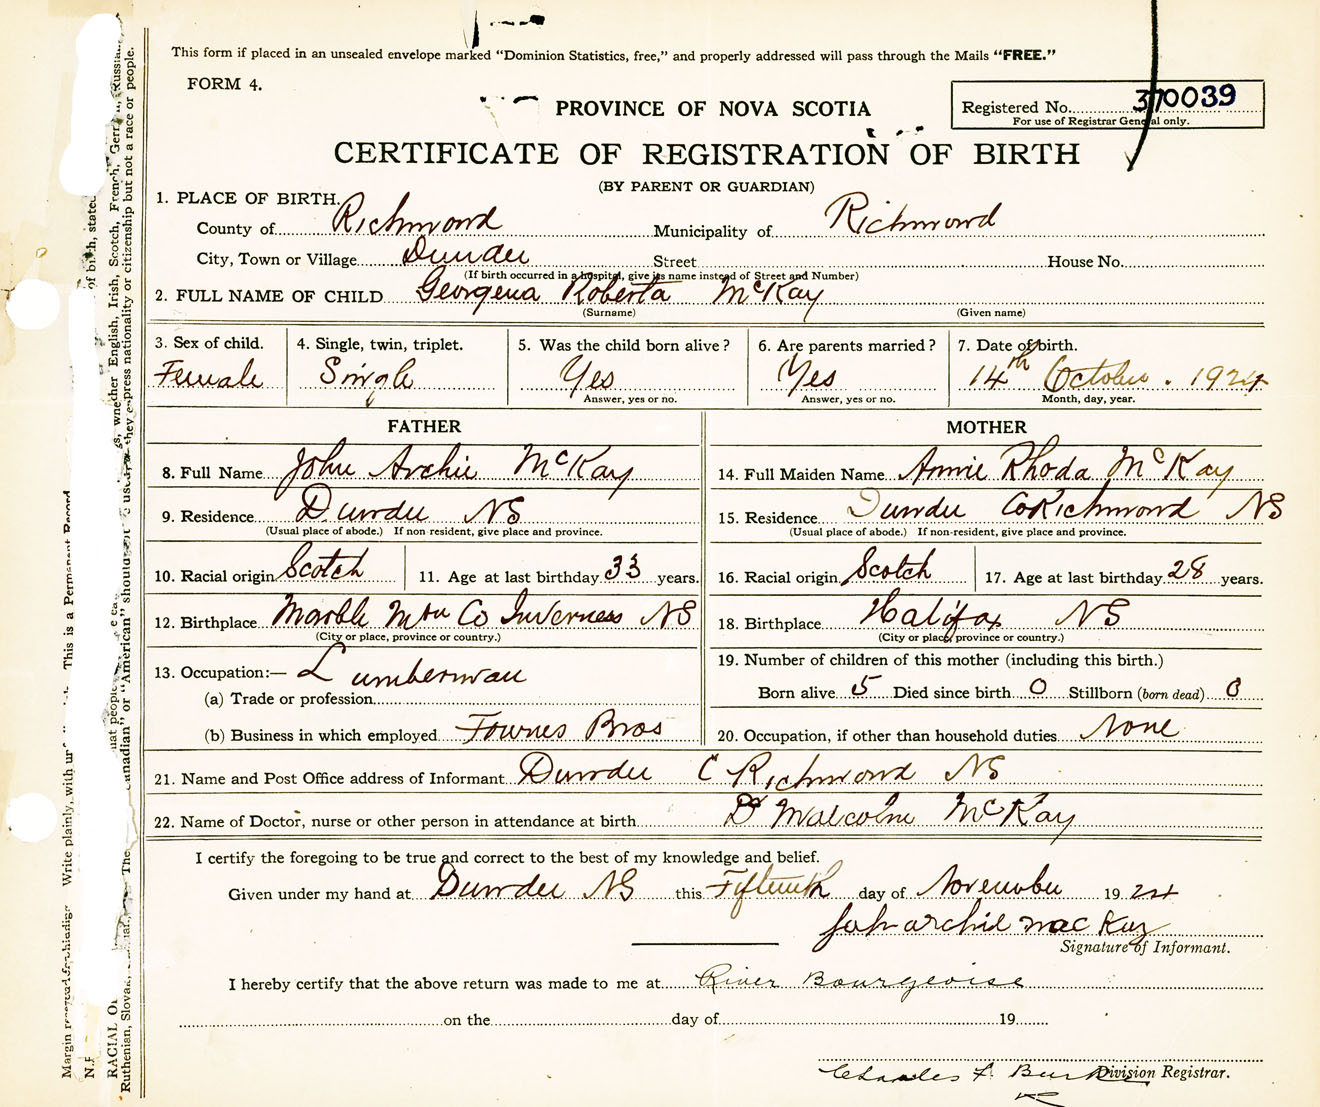 This form if placed in an unsealed envelope marked "Dominion Statistics, free," and properly addressed will pass through the Mails "FREE."
FORM 4.
Registered No. 370039
For use of Registrar General only.
PROVINCE OF NOVA SCOTIA
CERTIFICATE OF REGISTRATION OF BIRTH
(BY PARENT OR GUARDIAN)
1. PLACE OF BIRTH.
County of Richmond Municipality of Richmond
City, Town or Village Dundee Street House No.
(If birth occurred in a hospital, give its name instead of Street and Number)
2. FULL NAME OF CHILD Georgena Roberta McKay
(Surname) (Given name)
3. Sex of child. 4. Single, twin, triplet. 5. Was the child born alive? 6. Are parents married? 7. Date of birth.
Female Single Yes Yes 14th October. 1924
Answer, yes or no. Answer, yes or no. Month, day, year.
FATHER MOTHER
8. Full Name John Archie McKay 14. Full Maiden Name Annie Rhoda McKay
9. Residence Dundee NS 15. Residence Dundee Co Richmond NS
(Usual place of abode.) If non-resident, give place and province. (Usual place of abode.) If non-resident, give place and province.
10. Racial origin Scotch 11. Age at last birthday 33 years. 16. Racial origin Scotch 17. Age at last birthday 28 years.
12. Birthplace Marble Mtn Co Inverness NS 18. Birthplace Halifax NS
(City or place, province or country.) (City or place, province or country.)
13. Occupation:— Lumberman 19. Number of children of this mother (including this birth.)
(a) Trade or profession Born alive 5 Died since birth 0 Stillborn (born dead) 0
(b) Business in which employed Fownes Bros 20. Occupation, if other than household duties None
21. Name and Post Office address of Informant Dundee C Richmond NS
22. Name of Doctor, nurse or other person in attendance at birth Dr Malcolm McKay
I certify the foregoing to be true and correct to the best of my knowledge and belief.
Given under my hand at Dundee NS this Fifteenth day of November 1924
John archie mac Kay
Signature of Informant.
I hereby certify that the above return was made to me at River Bourgeoise
on the day of 19
Charles F. Division Registrar.
Margin Write plainly, with This is a Permanent Record
N.B. of birth, stated
RACIAL whether English, Irish, Scotch, French, Russian,
Ruthenian, Slovak, The "Canadian" or "American" should they express nationality or citizenship but not a race or people.